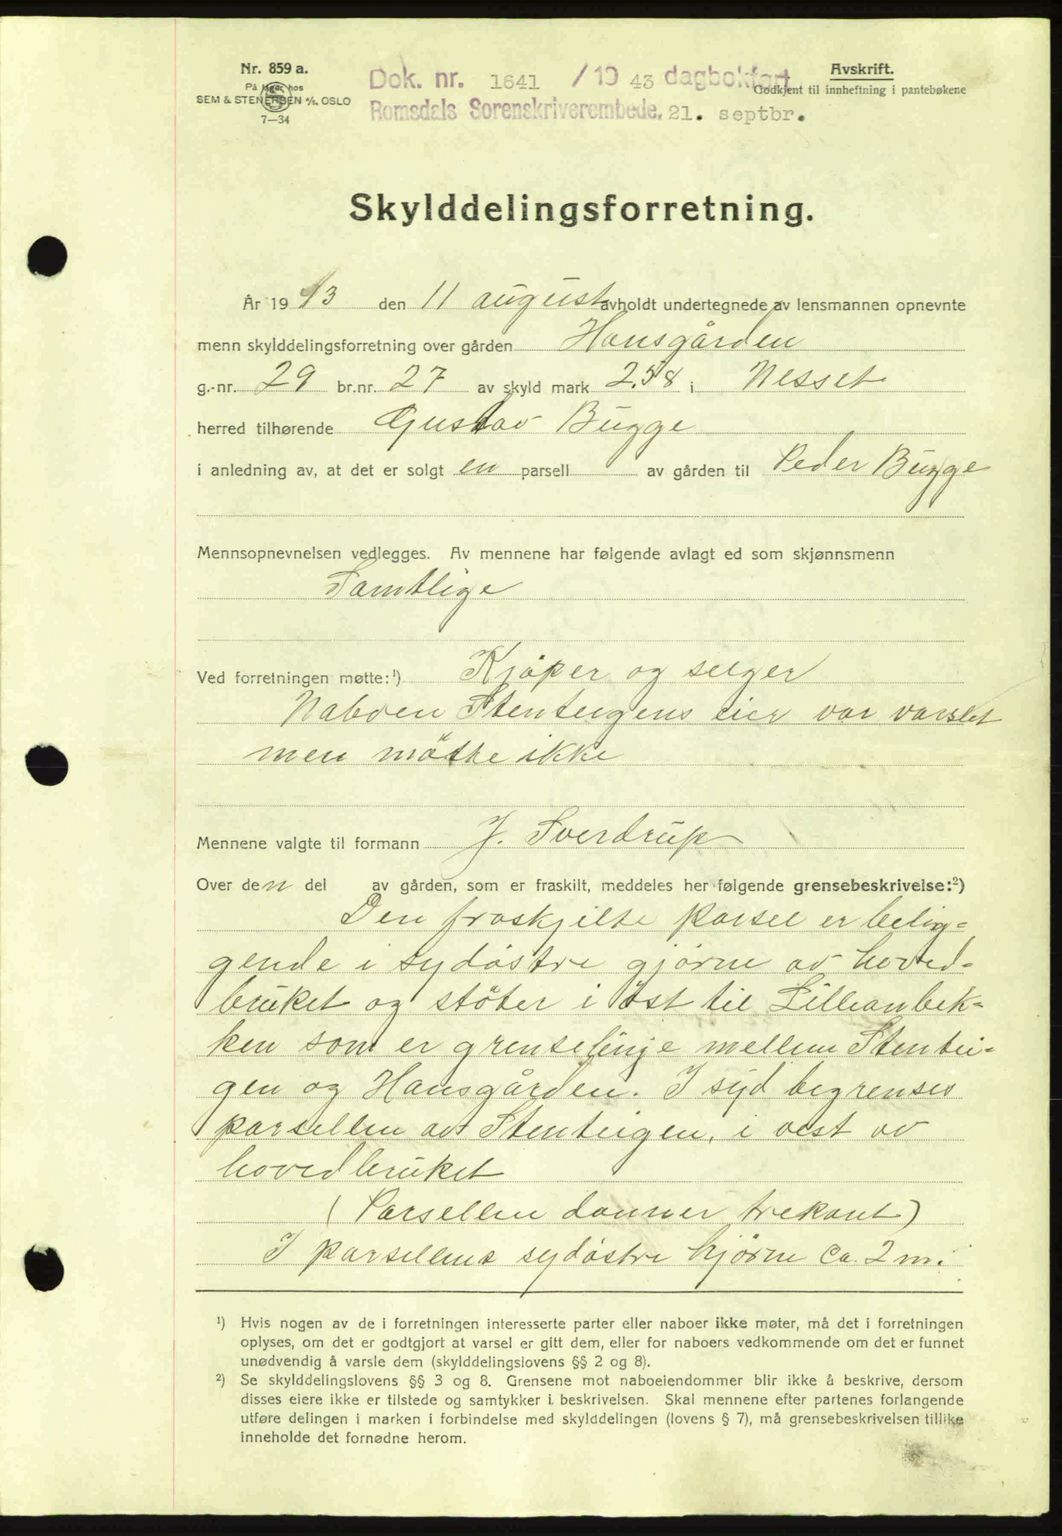 Nr. 859 a.
På lager hos
SEM & STENERSEN A/S, OSLO
7—34
Dok. nr. 1641 / 19 43 dagbokført
Romsdals Sorenskriverembede, 21. septbr.
Avskrift.
Godkjent til innheftning i pantebøkene
Skylddelingsforretning.
År 1943 den 11 august avholdt undertegnede av lensmannen opnevnte
menn skylddelingsforretning over gården Hansgården
g.-nr. 29 br.nr. 27 av skyld mark 2.58 i Nesset
herred tilhørende Gustav Bugge
i anledning av, at det er solgt en parsell av gården til Peder Bugge
Mennsopnevnelsen vedlegges. Av mennene har følgende avlagt ed som skjønnsmenn
Samtlige
Ved forretningen møtte:¹) Kjøper og selger
Naboen Stenteigens eier var varslet
men møtte ikke
Mennene valgte til formann J. Sverdrup
Over den del av gården, som er fraskilt, meddeles her følgende grensebeskrivelse:²)
Den fraskjilte parsel er belig=
gende i sydøstre gjørne av hoved-
bruket og støter i øst til Lilleanbek=
ken som er grenselinje mellem Stentei-
gen og Hansgården. I syd begrenses
parsellen av Stenteigen, i vest av
hovedbruket
(Parsellen danner trekant)
I parsellens sydøstre hjørne ca. 2 m.
¹) Hvis nogen av de i forretningen interesserte parter eller naboer ikke møter, må det i forretningen
oplyses, om det er godtgjort at varsel er gitt dem, eller for naboers vedkommende om det er funnet
unødvendig å varsle dem (skylddelingslovens §§ 2 og 8).
²) Se skylddelingslovens §§ 3 og 8. Grensene mot naboeiendommer blir ikke å beskrive, dersom
disses eiere ikke er tilstede og samtykker i beskrivelsen. Skal mennene efter partenes forlangende
utføre delingen i marken i forbindelse med skylddelingen (lovens § 7), må grensebeskrivelsen tillike
inneholde det fornødne herom.